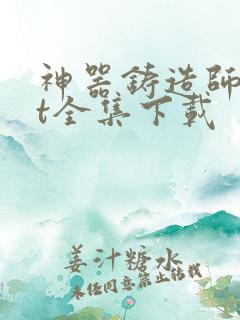 神器铸造師
t全集下載
姜汁糖水
未经同意禁止转载